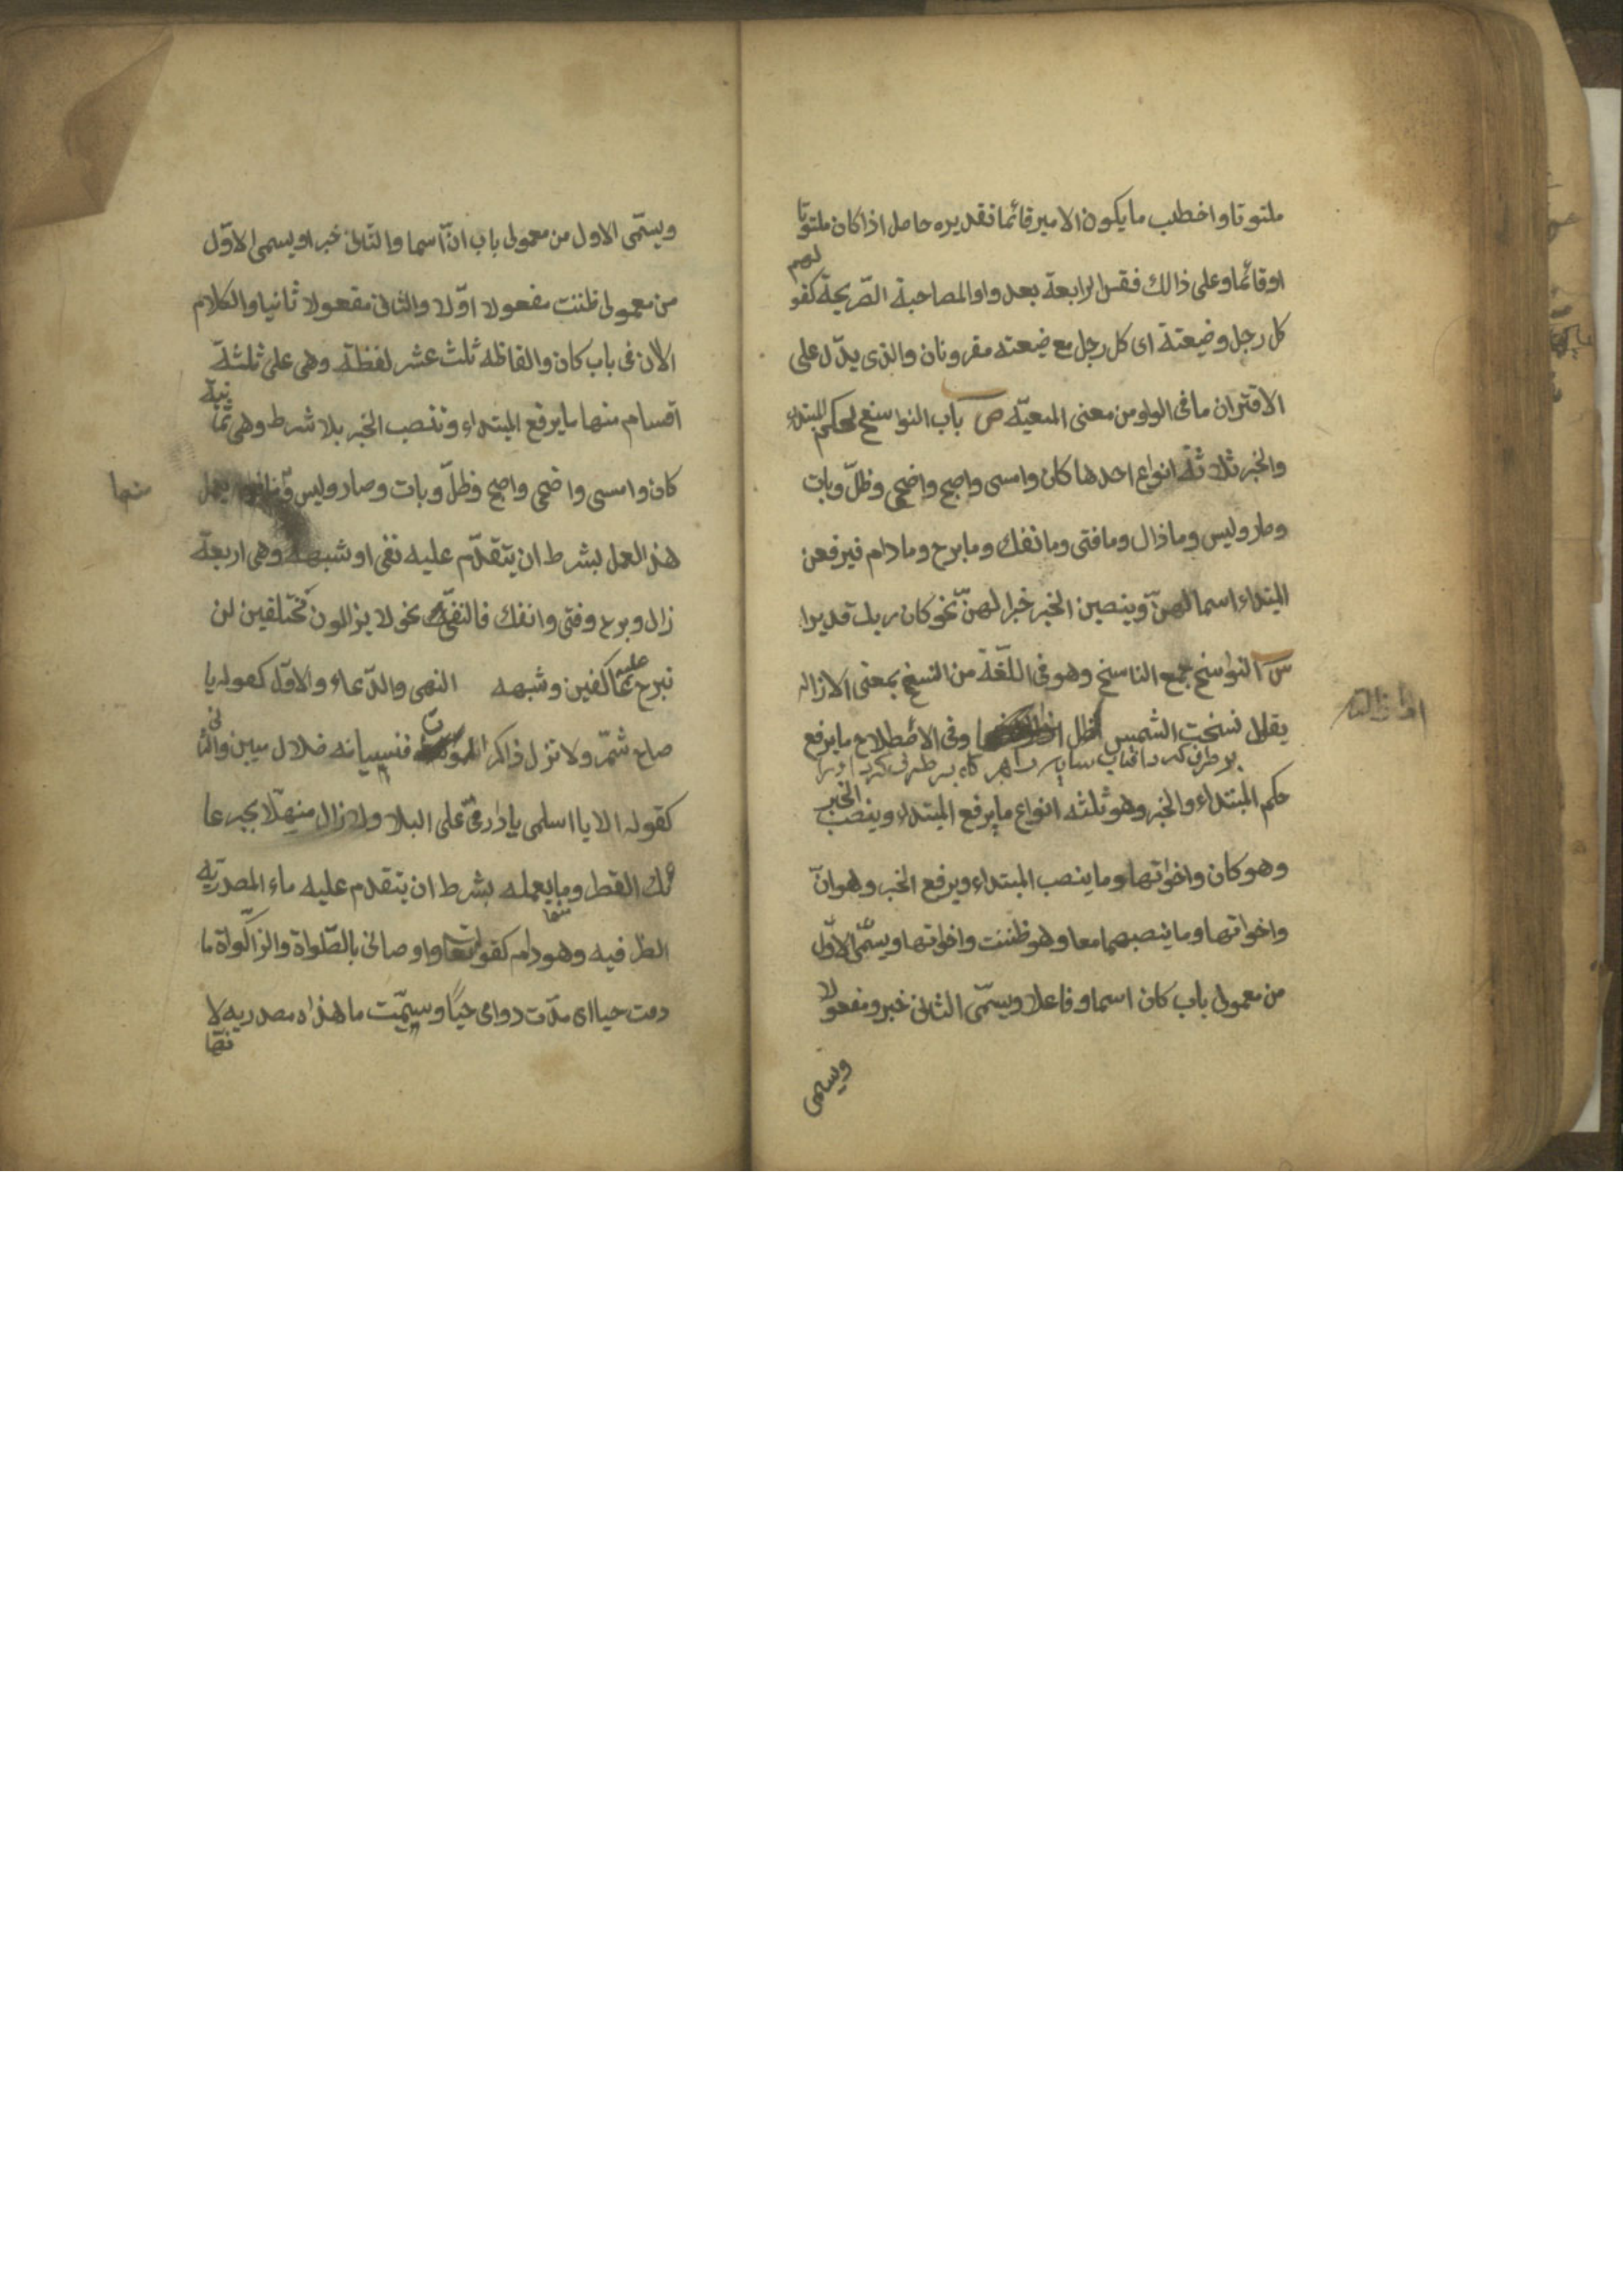 ملتوتا واخطب ما يكون الامير قائما فقديره حاصل اذا كان ملتوتا
او قائما وعلى ذالك فقس الرابعة بعد واو المصاحبة الصّريحة كقولهم
كل رجل وضيعتة اى كل رجل مع ضيعته مقرونان والذى يدّل على
الاقتران ما فى الواو من معنى المعيّه ص باب النواسخ لحكم المبتداء
والخبر ثلاثة انواع احدها كان وامسى واصبح واضحى وظلّ وبات
وصار وليس وماذال ومافتى وما نفك ومابرح ومادام فيرفعن
المبتداء اسما لهنّ وينصبن الخبر خبرا لهنّ نحو كان ربك قديرا
س النواسخ جمع الناسخ وهو فى اللّغة من النسخ بمعنى الازاله
يقال نسخت الشمس الظل وفى الأصطلاح ما يرفع
بر طرف كرد افتاب سايه را
حكم المبتداء والخبر وهو ثلثه انواع ما يرفع المبتداء وينصب الخبر
وهو كان واخواتها وما ينصب المبتداء ويرفع الخبر وهو انّ
واخواتها وما ينصبهما معا وهو ظننت واخواتها ويسمّى الاوّل
من معمولى باب كان اسما وفاعلا ويسمّى الثانى خبر ومفعولا
ويسمى
ويسمّى الاول من معمولى باب انّ اسما والثانى خبرا ويسمى الاوّل
من معمولى ظننت مفعولا اوّلا والثانى مفعولا ثانيا والكلام
الأن فى باب كان والفاظه ثلث عشر لفظة وهى على ثلثة
اقسام منها ما يرفع المبتداء وننصب الخبر بلا شرط وهى ثمانية
كان وامسى واضحى واصبح وظلّ وبات وصار وليس يعمل
منها
هذ العمل بشرط ان يتقدّم عليه نفى او شبهه وهى اربعة
زال وبرح وفتى وانفك فالنفى نحو لا يزالون مختلفين لن
نبرح عليه عاكفين وشبهه النهى والدّعاء والاوّل كقوله يا
صاح شمّر ولا تزل ذاكر الموت فنسيانه ضلال مبين والثانى
كقوله الا يا اسلمى يا دار مىّ على البلا ولا زال منهلّا بجرعا
ئك القطر وما يعمله بشرط ان يتقدم عليه ماء المصدريّه
منها
الظرفيه وهو دام كقوله تعا واوصانى بالصّلواة والزاكواة ما
دمت حيا اى مدّت دوامى حيّا وسمّيت ما هذاه مصدريه لا
نها